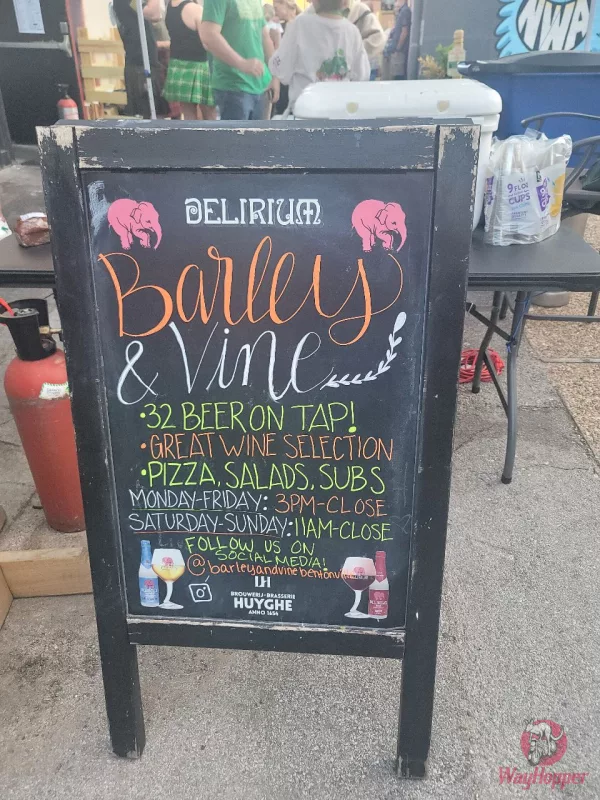 NWA
DELIRIUM
Barley
& Vine
•32 BEER ON TAP!
•GREAT WINE SELECTION
•PIZZA, SALADS, SUBS
MONDAY-FRIDAY: 3PM-CLOSE
SATURDAY-SUNDAY: 11AM-CLOSE
FOLLOW US ON
SOCIAL MEDIA!
@barleyandvinebentonville
BROUWERIJ-BRASSERIE
HUYGHE
ANNO 1654
9 FL OZ
CUPS
WayHopper